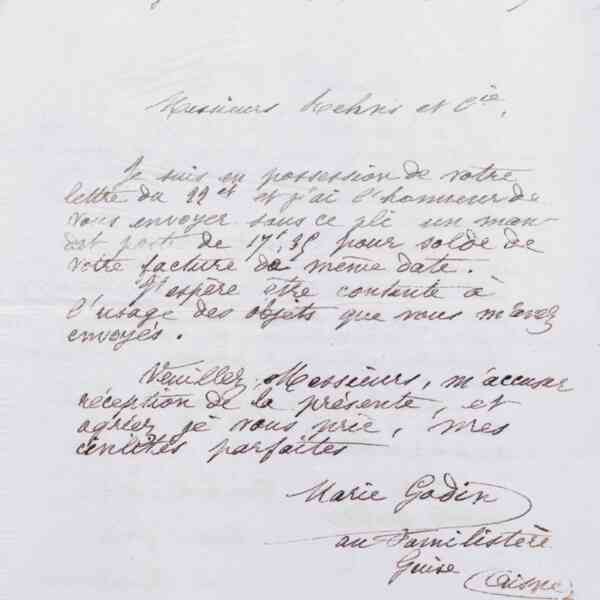 Messieurs Rehns et Cie,
Je suis en possession de votre
lettre du 22 ct et j'ai l'honneur de
vous envoyer sous ce pli un man-
dat poste de 17f,35 pour solde de
votre facture de même date.
J'espère être contente à
l'usage des objets que vous m'avez
envoyés.
Veuillez, Messieurs, m'accuser
réception de la présente, et
agréer je vous prie, mes
civilités parfaites
Marie Godin
au Familistère
Guise (Aisne)